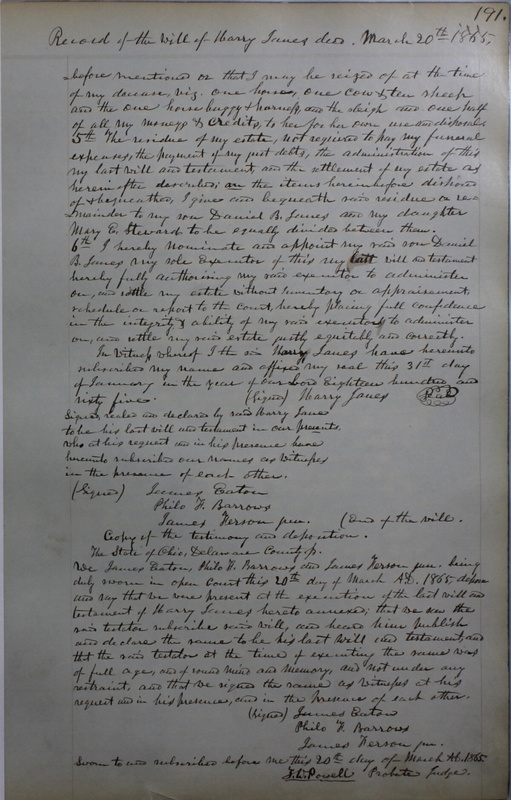 191.
Record of the Will of Harry Janes decd. March 20th 1865.
before mentioned or that I may be seized of at the time
of my decease, viz. one horse, one cow & ten sheep
and the one horse buggy & harness and the sleigh and one half
of all my moneys & credits, to her for her own use and disposal
5th The residue of my estate, not required to pay my funeral
expenses, the payment of my just debts, the administration of this
my last will and testament, and the settlement of my estate as
herein after described; an the items hereinbefore disposed
of & bequeathed, I give and bequeath said residue or re=
mainder to my son Daniel B. Janes and my daughter
Mary E. Steward to be equally divided between them.
6th I hereby nominate and appoint my said son Daniel
B. Janes my sole Executor of this my last will and testament
hereby fully authorising my said executor to administer
on, and settle my estate without Inventory or appraisement,
schedule or report to the court, hereby placing full confidence
in the integrity & ability of my said executor to administer
on, and settle my said estate justly equitably and correctly.
In Witness whereof I the said Harry Janes have hereunto
subscribed my name and affixed my seal this 31st day
of January in the year of our Lord Eighteen hundred and
sixty five. (Signed) Harry Janes Seal
Signed, sealed and declared by said Harry Janes
to be his last will and testament in our presents.
who at his request and in his presence have
hereunto subscribed our names as witnesses
in the presence of each other.
(Signed) James Eaton
Philo F. Barrows
James Ferson jun. (End of the will.
Copy of the testimony and deposition.
The State of Ohio, Delaware County, ss.
We James Eaton, Philo F. Barrows and James Ferson jun. being
duly sworn in open Court this 20th day of March A.D. 1865 depose
and say that we were present at the execution of the last will and
testament of Harry Janes hereto annexed; that we saw the
said testator subscribe said will, and heard him publish
and declare the same to be his last Will and testament, and
that the said testator at the time of executing the same was
of full age, and of sound mind and memory, and not under any
restraint, and that we signed the same as witness at his
request and in his presence, and in the Presence of each other.
(Signed) James Eaton
Philo F. Barrows
James Ferson jun.
Sworn to and subscribed before me this 20th day of March A.D. 1865
T.W. Powell Probate Judge.